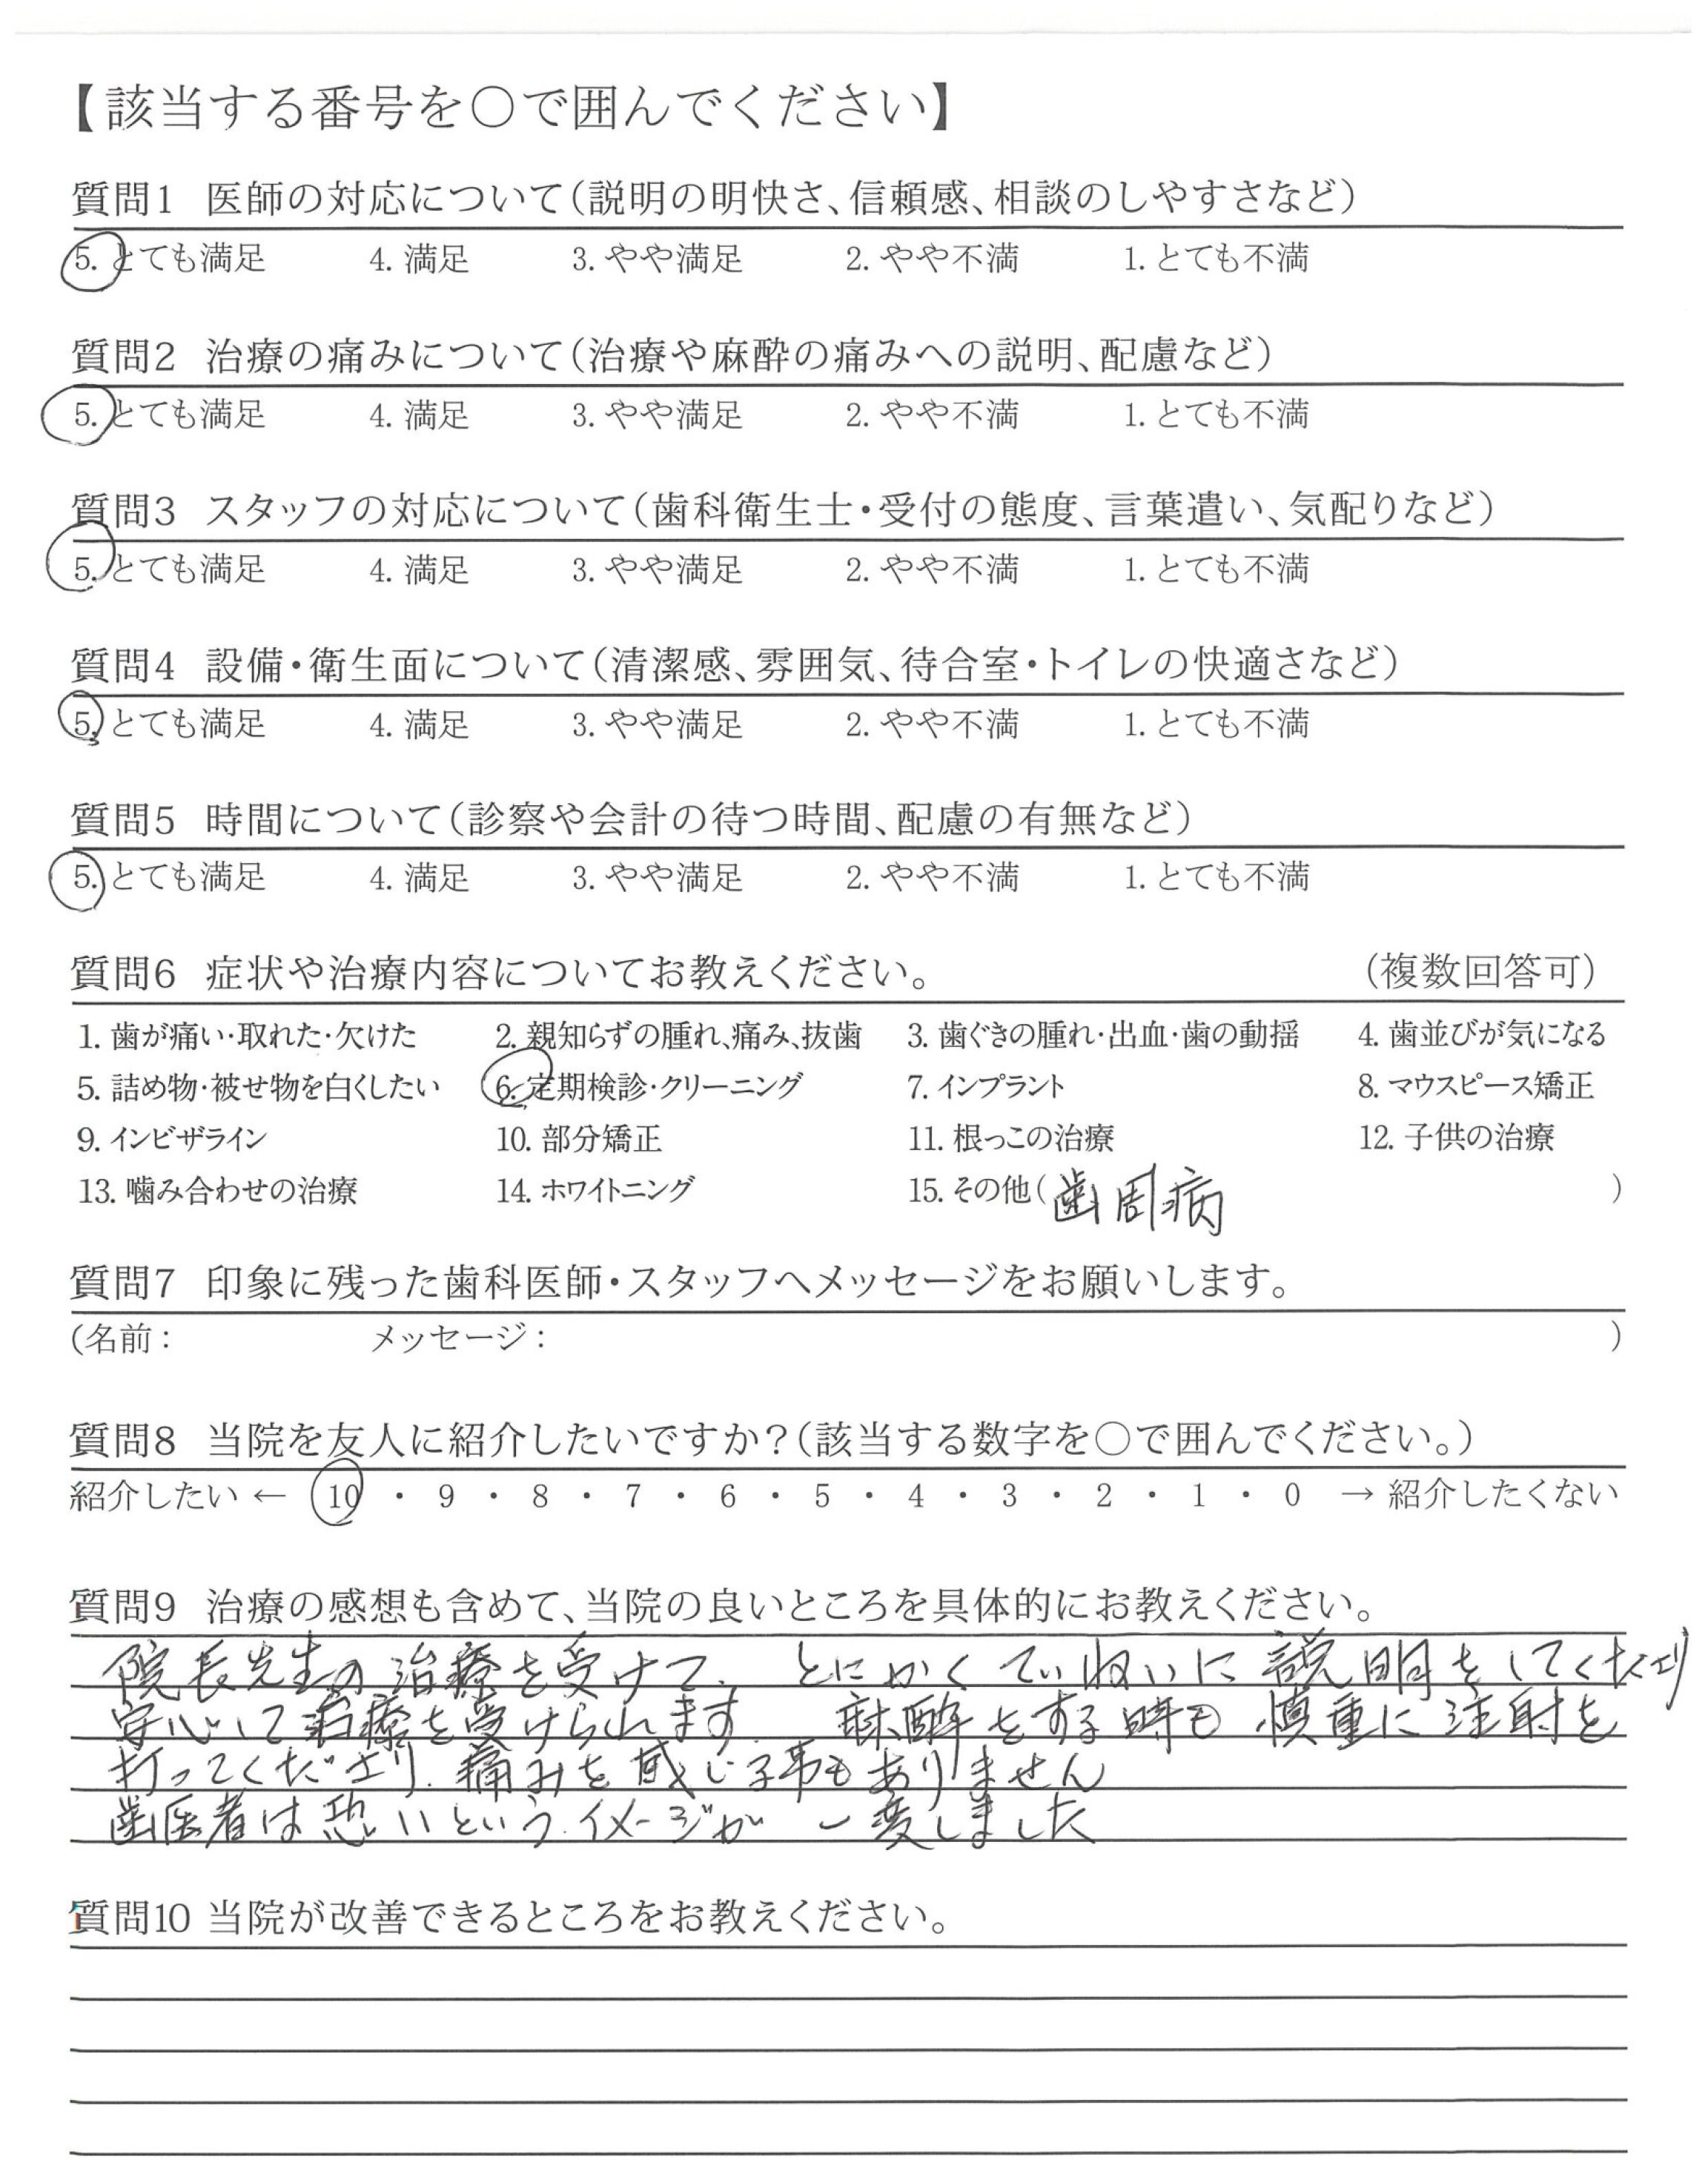 【該当する番号を○で囲んでください】
質問1 医師の対応について(説明の明快さ、信頼感、相談のしやすさなど)
5. とても満足 4. 満足 3. やや満足 2. やや不満 1. とても不満
質問2 治療の痛みについて(治療や麻酔の痛みへの説明、配慮など)
5. とても満足 4. 満足 3. やや満足 2. やや不満 1. とても不満
質問3 スタッフの対応について(歯科衛生士・受付の態度、言葉遣い、気配りなど)
5. とても満足 4. 満足 3. やや満足 2. やや不満 1. とても不満
質問4 設備・衛生面について(清潔感、雰囲気、待合室・トイレの快適さなど)
5. とても満足 4. 満足 3. やや満足 2. やや不満 1. とても不満
質問5 時間について(診察や会計の待つ時間、配慮の有無など)
5. とても満足 4. 満足 3. やや満足 2. やや不満 1. とても不満
質問6 症状や治療内容についてお教えください。 (複数回答可)
1. 歯が痛い・取れた・欠けた 2. 親知らずの腫れ、痛み、抜歯 3. 歯ぐきの腫れ・出血・歯の動揺 4. 歯並びが気になる
5. 詰め物・被せ物を白くしたい 6. 定期検診・クリーニング 7. インプラント 8. マウスピース矯正
9. インビザライン 10. 部分矯正 11. 根っこの治療 12. 子供の治療
13. 噛み合わせの治療 14. ホワイトニング 15. その他(歯周病 )
質問7 印象に残った歯科医師・スタッフへメッセージをお願いします。
(名前: メッセージ: )
質問8 当院を友人に紹介したいですか?(該当する数字を○で囲んでください。)
紹介したい ← 10 ・ 9 ・ 8 ・ 7 ・ 6 ・ 5 ・ 4 ・ 3 ・ 2 ・ 1 ・ 0 → 紹介したくない
質問9 治療の感想も含めて、当院の良いところを具体的にお教えください。
院長先生の治療を受けて、とにかくていねいに説明をしてくださり
安心して治療を受けられます 麻酔をする時も慎重に注射を
打ってくださり、痛みを感じる事もありません
歯医者は恐いというイメージが一変しました
質問10 当院が改善できるところをお教えください。